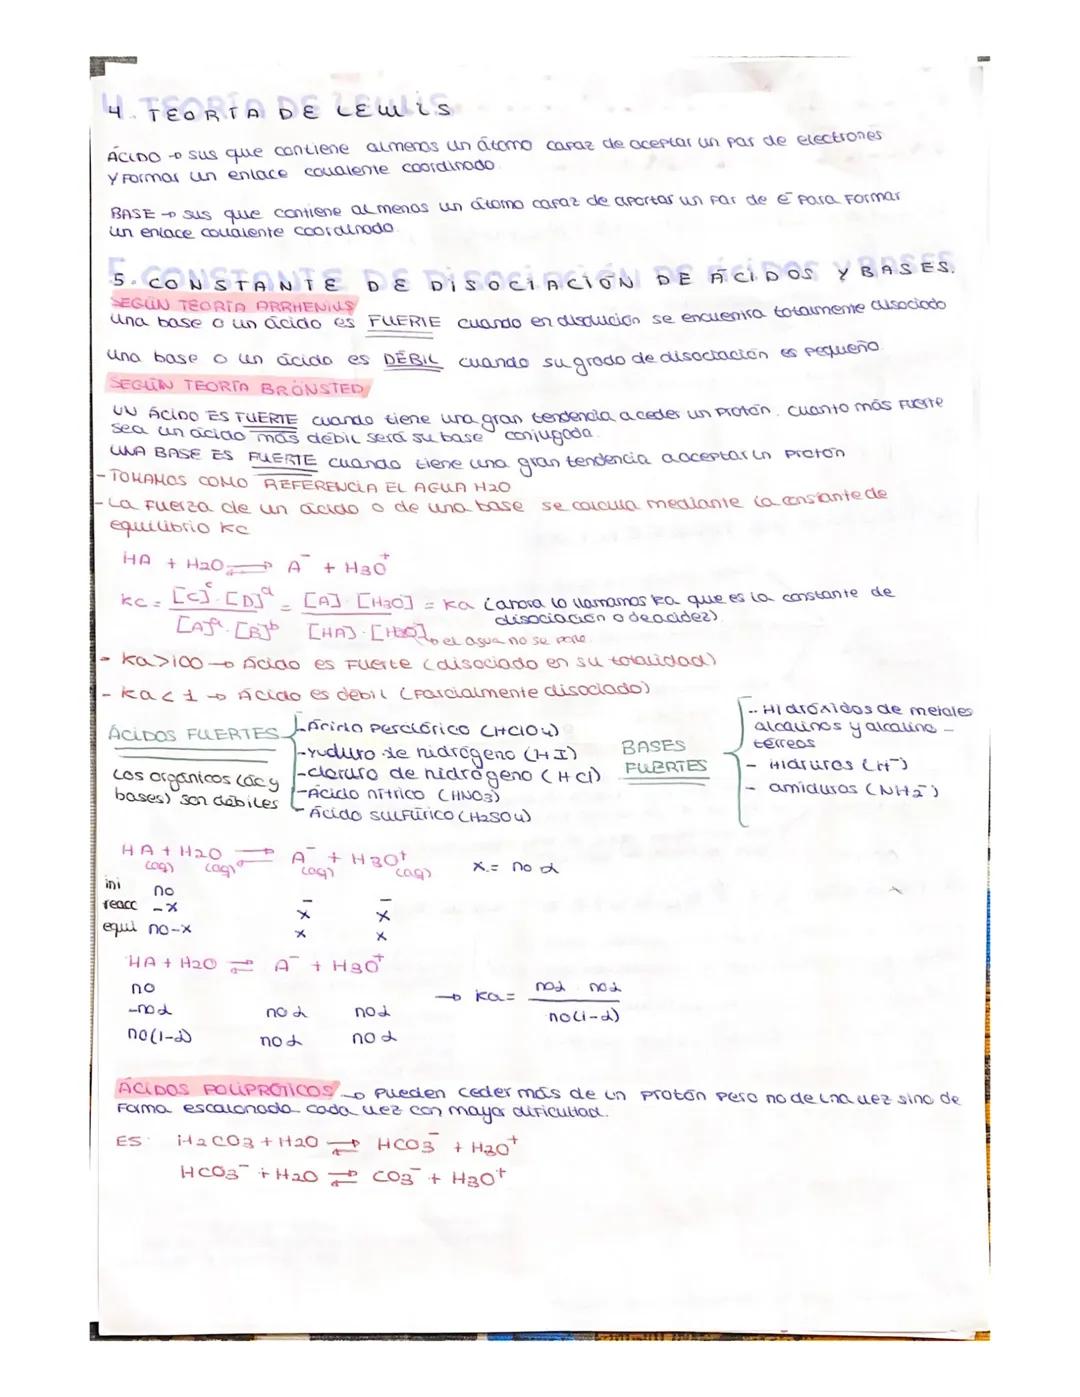 4. TEORÍA DE LEWIS
ÁCIDO → sus que contiene almenos un átomo capaz de aceptar un par de electrones
y formar un enlace covalente coordinado.
BASE → sus que contiene al menos un átomo capaz de aportar un par de e⁻ para formar
un enlace covalente coordinado.
5. CONSTANTE DE DISOCIACIÓN DE ÁCIDOS Y BASES.
SEGÚN TEORÍA ARRHENIUS
Una base o un ácido es FUERTE cuando en disolución se encuentra totalmente disociado
Una base o un ácido es DÉBIL cuando su grado de disociación es pequeño.
SEGÚN TEORÍA BRÖNSTED
UN ÁCIDO ES FUERTE cuando tiene una gran tendencia a ceder un protón. Cuanto más fuerte
sea un ácido más débil será su base conjugada.
UNA BASE ES FUERTE cuando tiene una gran tendencia a aceptar un protón
- TOMAMOS COMO REFERENCIA EL AGUA H2O
- La fuerza de un ácido o de una base se calcula mediante la constante de
equilibrio Kc
HA + H2O ⇌ A⁻ + H3O⁺
Kc = [C]ᶜ·[D]ᵈ / [A]ᵃ·[B]ᵇ = [A]·[H3O] / [HA]·[H2O] = Ka (ahora lo llamamos Ka que es la constante de
disociación o de acidez)
→ el agua no se pone.
- Ka>100 → Ácido es fuerte (disociado en su totalidad)
- Ka < 1 → Ácido es débil (parcialmente disociado)
ÁCIDOS FUERTES
Los orgánicos (ác y
bases) son débiles
- Ácido perclórico (HClO4)
- Yoduro de hidrógeno (HI)
- cloruro de hidrógeno (HCl)
- Ácido nítrico (HNO3)
- Ácido sulfúrico (H2SO4)
BASES
FUERTES
- Hidróxidos de metales
alcalinos y alcalino-
térreos
- Hidruros (H⁻)
- amiduros (NH2⁻)
HA + H2O ⇌ A⁻ + H3O⁺ x = no α
(aq) (aq) (aq) (aq)
ini no - -
reacc -x x x
equi no-x x x
HA + H2O ⇌ A⁻ + H3O⁺
no
-noα noα noα
no(1-α) noα noα
→ Ka = noα · noα / no(1-α)
ÁCIDOS POLIPRÓTICOS → Pueden ceder más de un protón pero no de una vez sino de
forma escalonada cada vez con mayor dificultad.
ES: H2CO3 + H2O ⇌ HCO3⁻ + H3O⁺
HCO3⁻ + H2O ⇌ CO3⁻ + H3O⁺